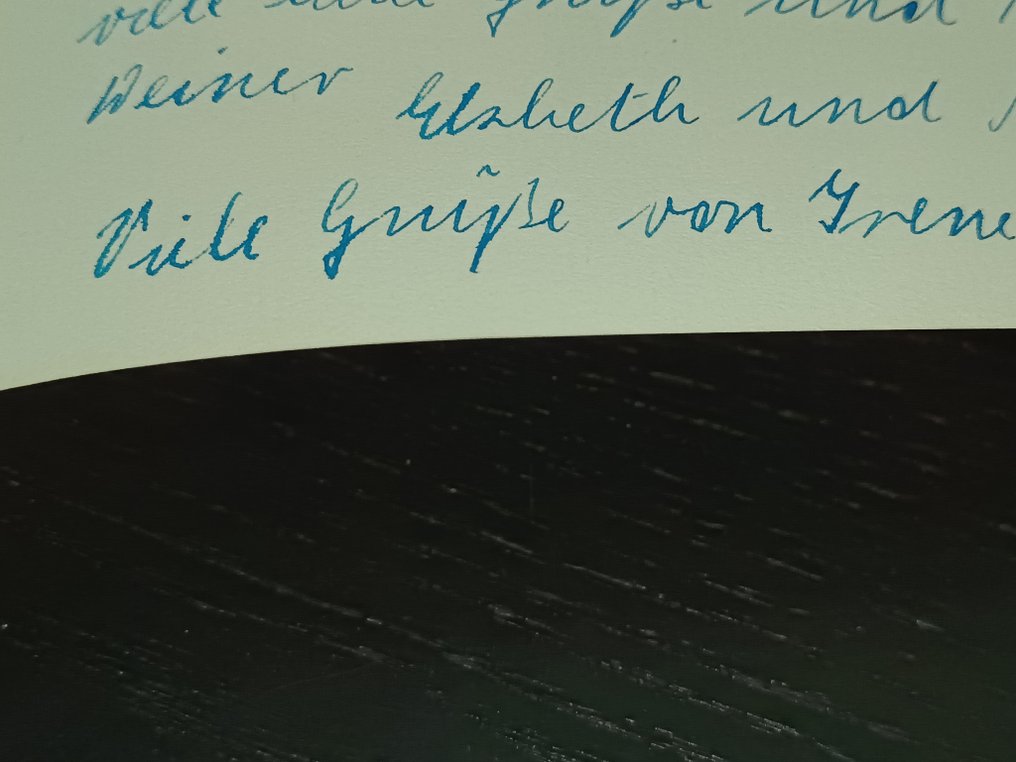 viele liebe Grüße und
Deiner Elsbeth und
Viele Grüße von Irene